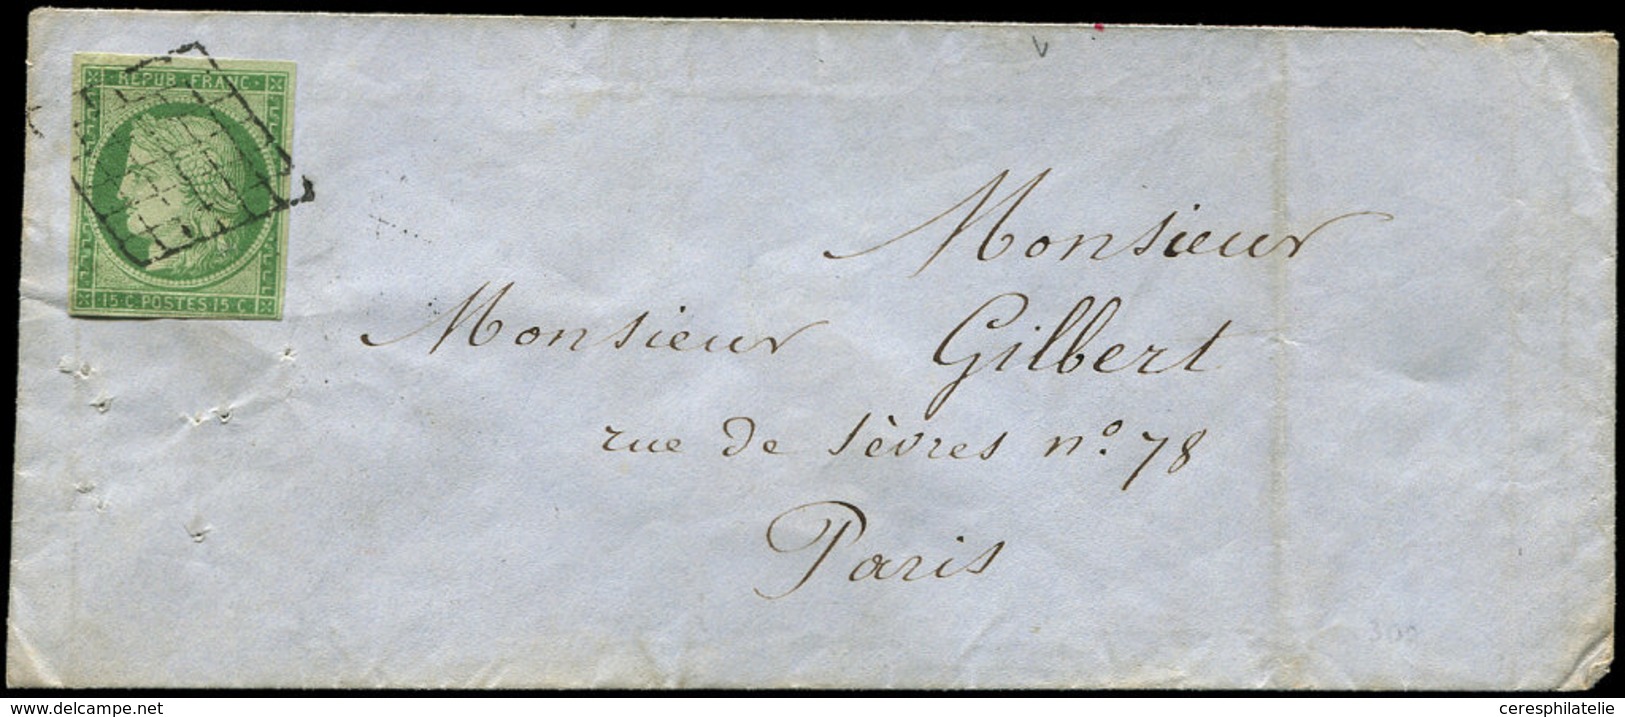 REPUB·FRANC·
15 C·POSTES·15 C
Monsieur
Monsieur Gilbert
rue de Sèvres n.º 78
Paris
300
www.delcampe.net
ceresphilatelie